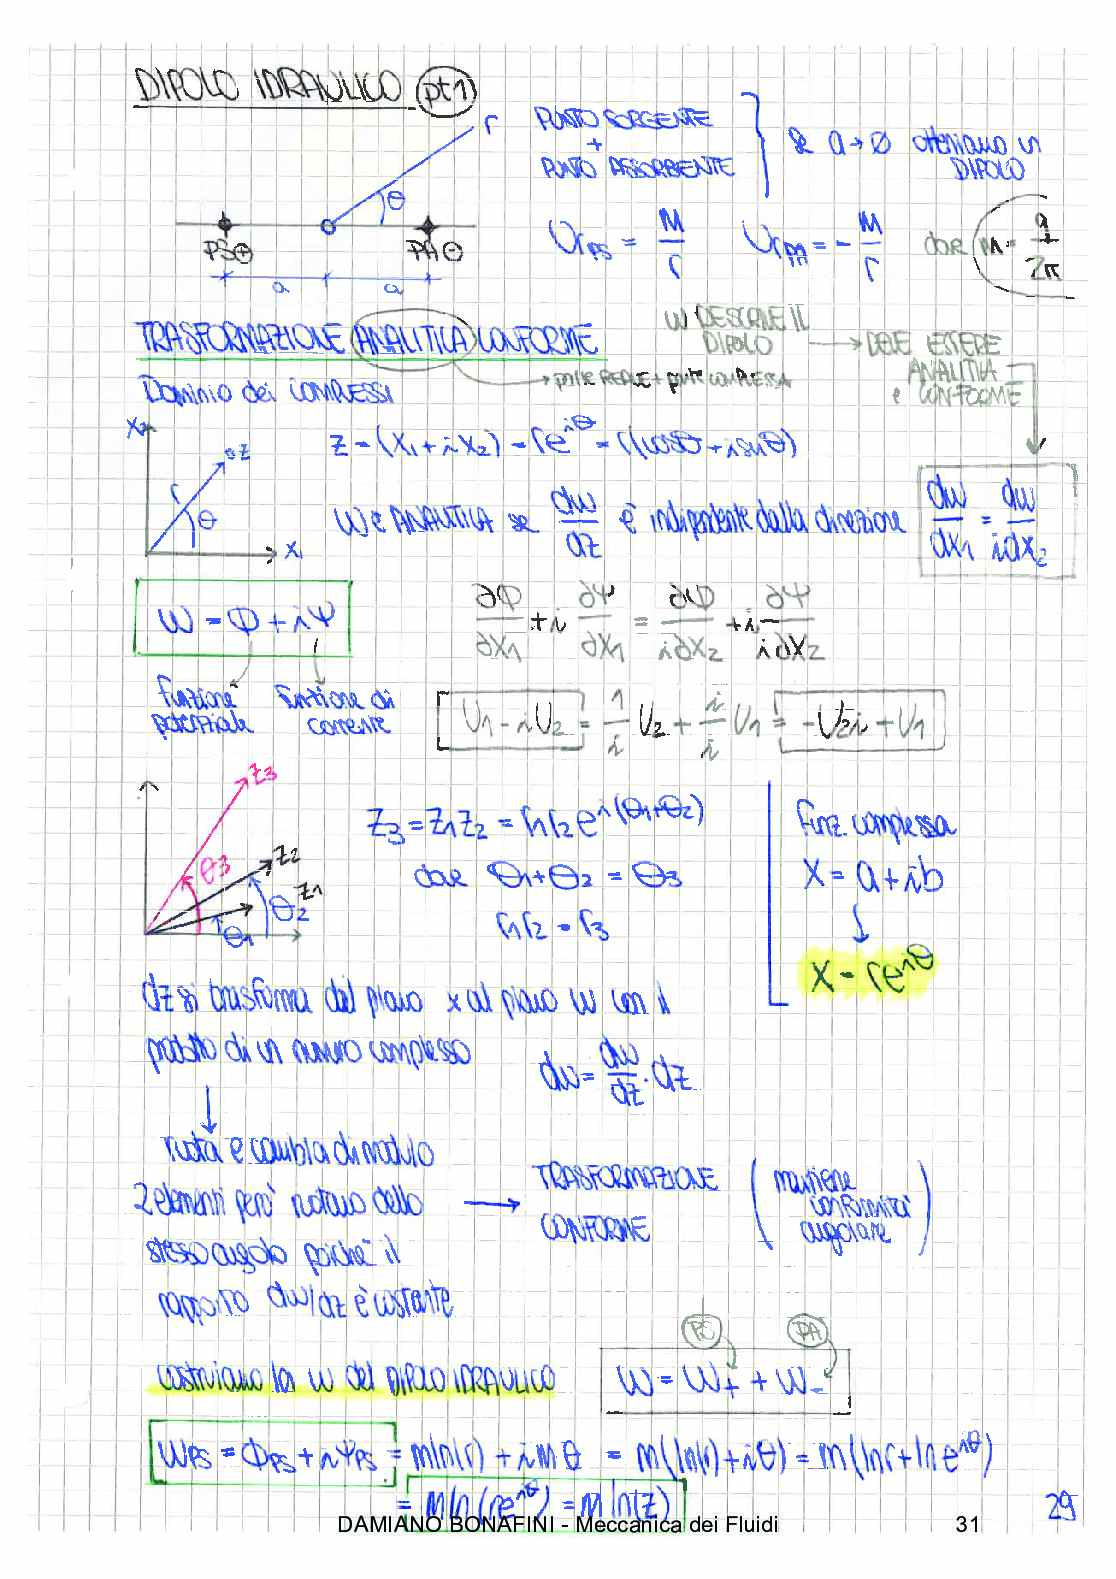 DIPOLO IDRAULICO (pt1)
r
θ
PS⊕
PA⊖
a
a
PUNTO SORGENTE
+
PUNTO ASSORBENTE
Se a → 0 otteniamo un DIPOLO
Ur_PS = M/r
Ur_PA = - M/r
dove m = q/2π
TRASFORMAZIONE ANALITICA CONFORME
→ parte REALE + parte COMPLESSA
W DESCRIVE IL DIPOLO → DEVE ESSERE ANALITICA e CONFORME
Dominio dei COMPLESSI
X₂
z
r
θ
X₁
z = (X₁ + iX₂) = re^{iθ} = r(cosθ + i senθ)
W è ANALITICA se dw/dz è indipendente dalla direzione
dw/dx₁ = dw/idx₂
W = Φ + iΨ
∂Φ/∂X₁ + i ∂Ψ/∂X₁ = ∂Φ/i∂X₂ + i ∂Ψ/i∂X₂
funzione potenziale
funzione di corrente
U₁ - iU₂ = 1/i U₂ + i/i U₁ = -U₂i + U₁
z₃
z₂
z₁
θ₃
θ₂
θ₁
Z₃ = Z₁Z₂ = r₁r₂e^{i(θ₁+θ₂)}
dove θ₁ + θ₂ = θ₃
r₁r₂ = r₃
Funz. complessa
X = a + ib
↓
X = re^{iθ}
dz si trasforma dal piano x al piano w con il
prodotto di un numero complesso
dw = dw/dz · dz
↓
ruota e cambia di modulo
2 elementi però ruotano dello
stesso angolo poiché il
rapporto dw/dz è costante
→ TRASFORMAZIONE CONFORME
(mantiene conformità angolare)
costruiamo la w del DIPOLO IDRAULICO
PS
PA
W = W₊ + W₋
W_PS = Φ_PS + iΨ_PS = m ln(r) + i m θ = m(ln(r) + iθ) = m(ln r + ln e^{iθ})
= m ln(re^{iθ}) = m ln(z)
29
DAMIANO BONAFINI - Meccanica dei Fluidi
31